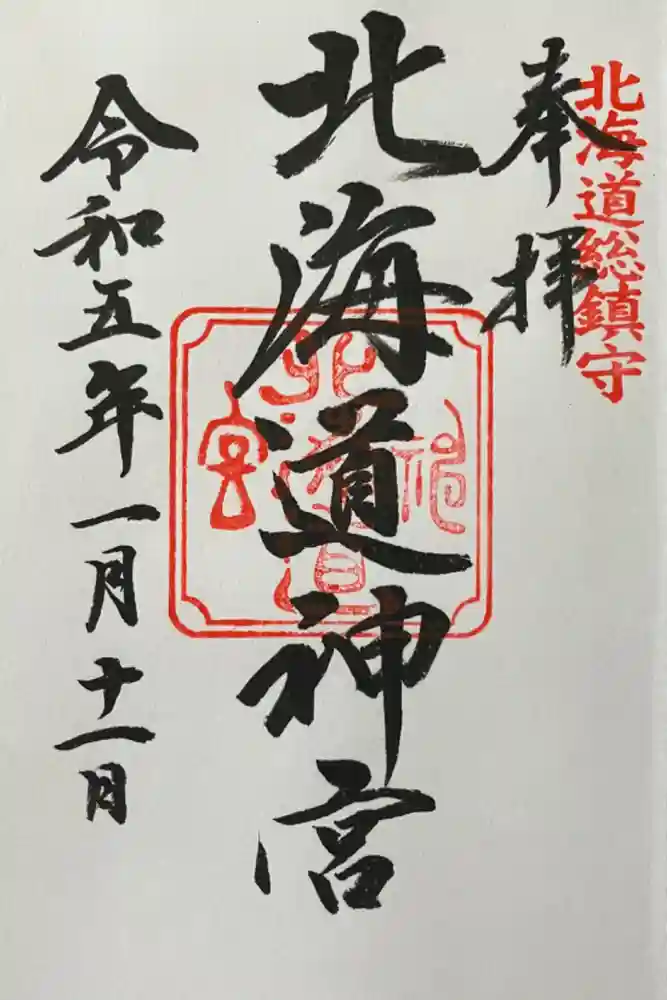 北海道総鎮守
奉拝
北海道神宮
北海道神宮
令和五年一月十一日